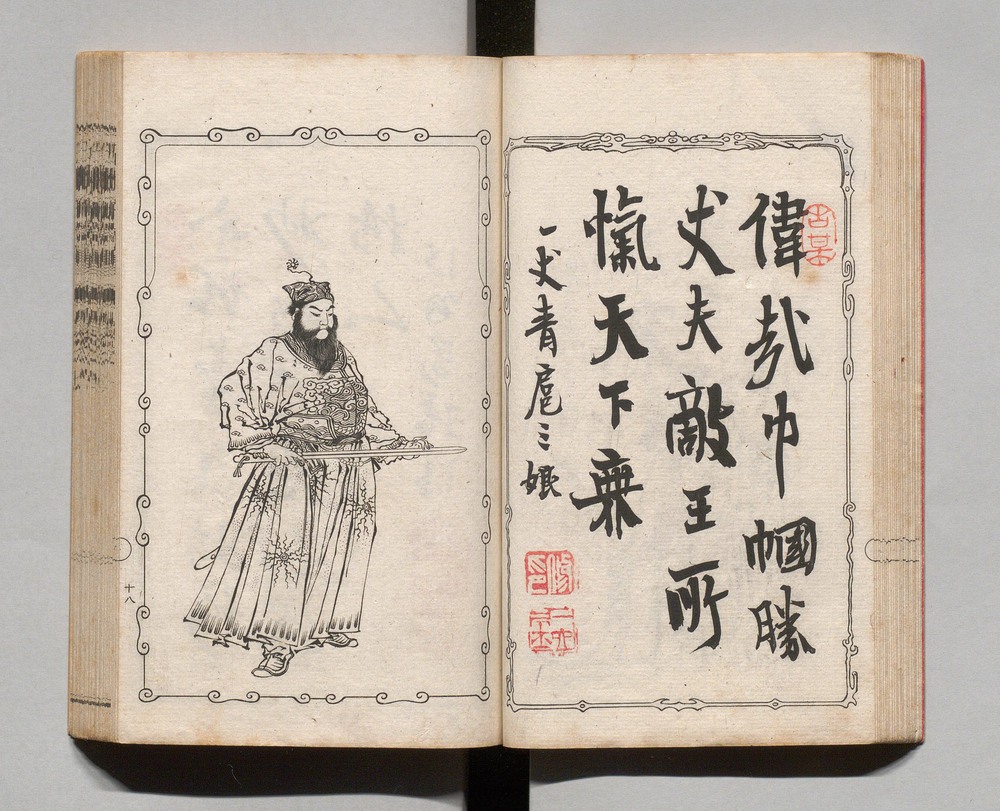 偉哉巾幗勝
丈夫敵王所
愾天下無
一丈青扈三娘
十八